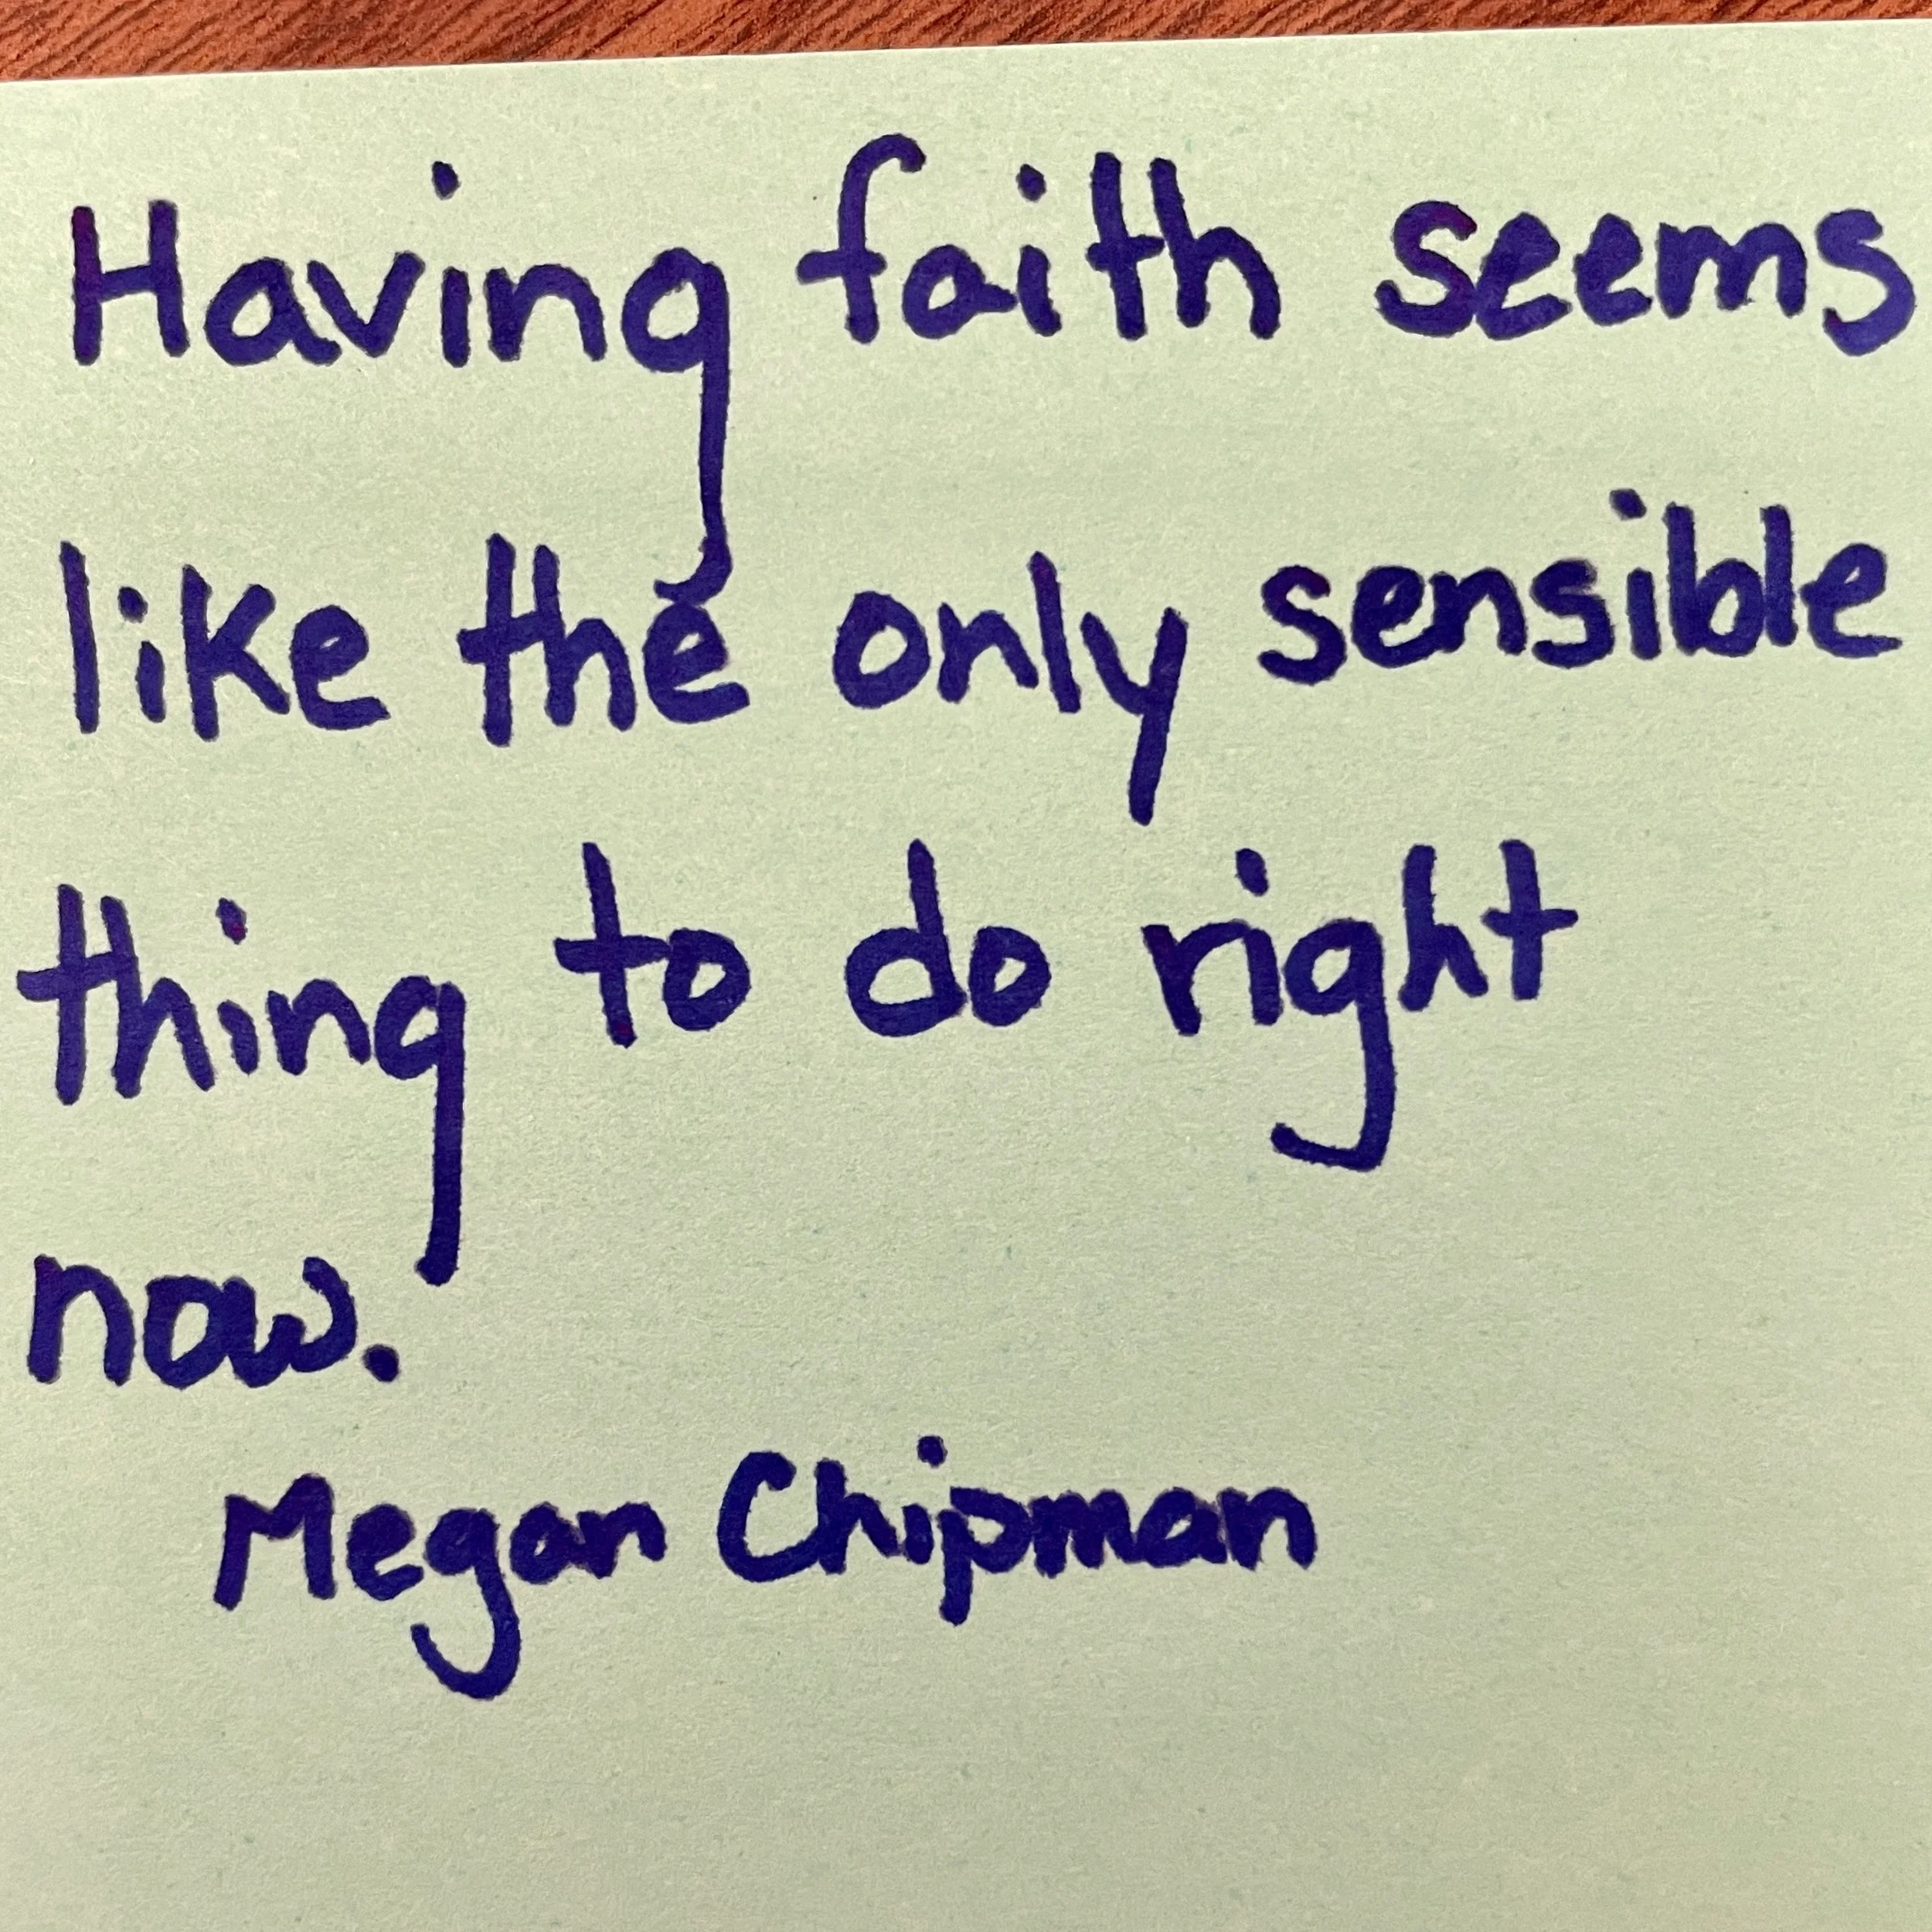 Having faith seems
like the only sensible
thing to do right
now.
Megan Chipman